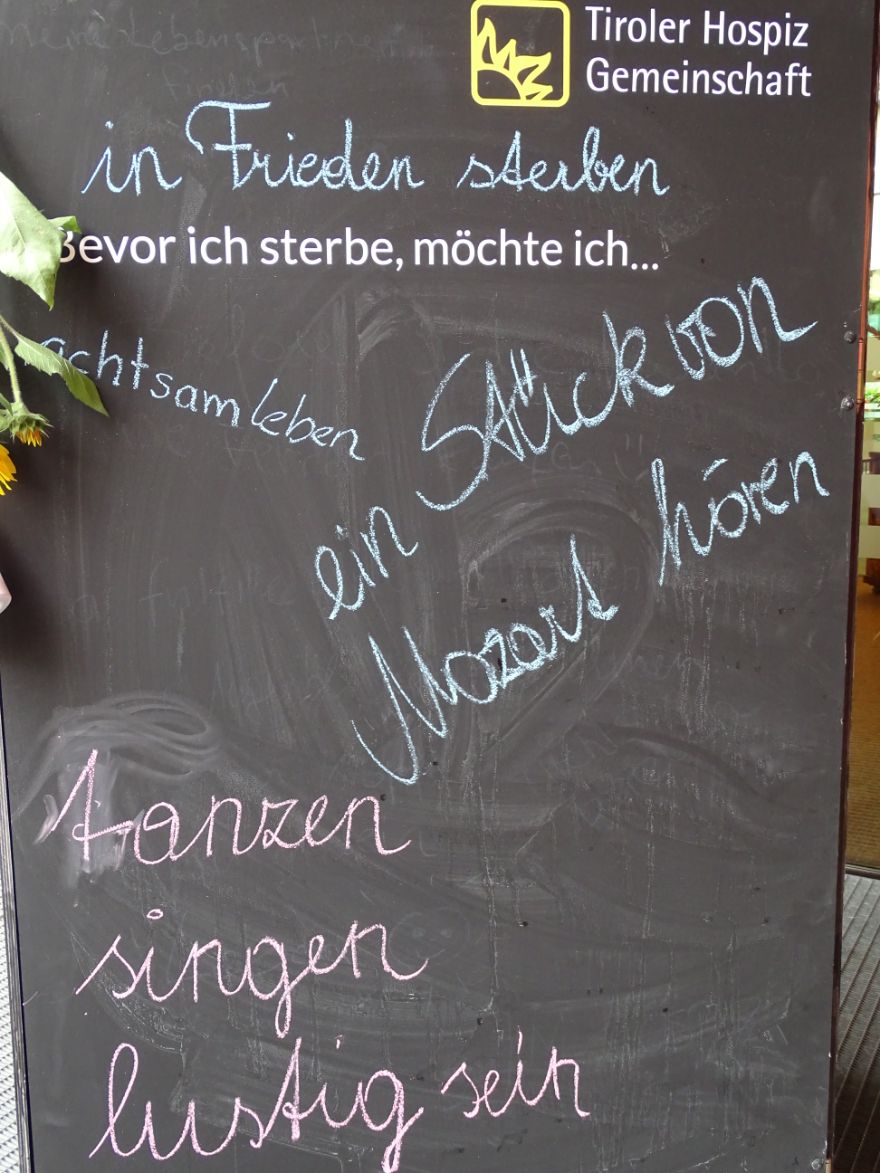 Tiroler Hospiz
Gemeinschaft
in Frieden sterben
Bevor ich sterbe, möchte ich...
achtsam leben
ein Stück von
Mozart hören
tanzen
singen
lustig sein